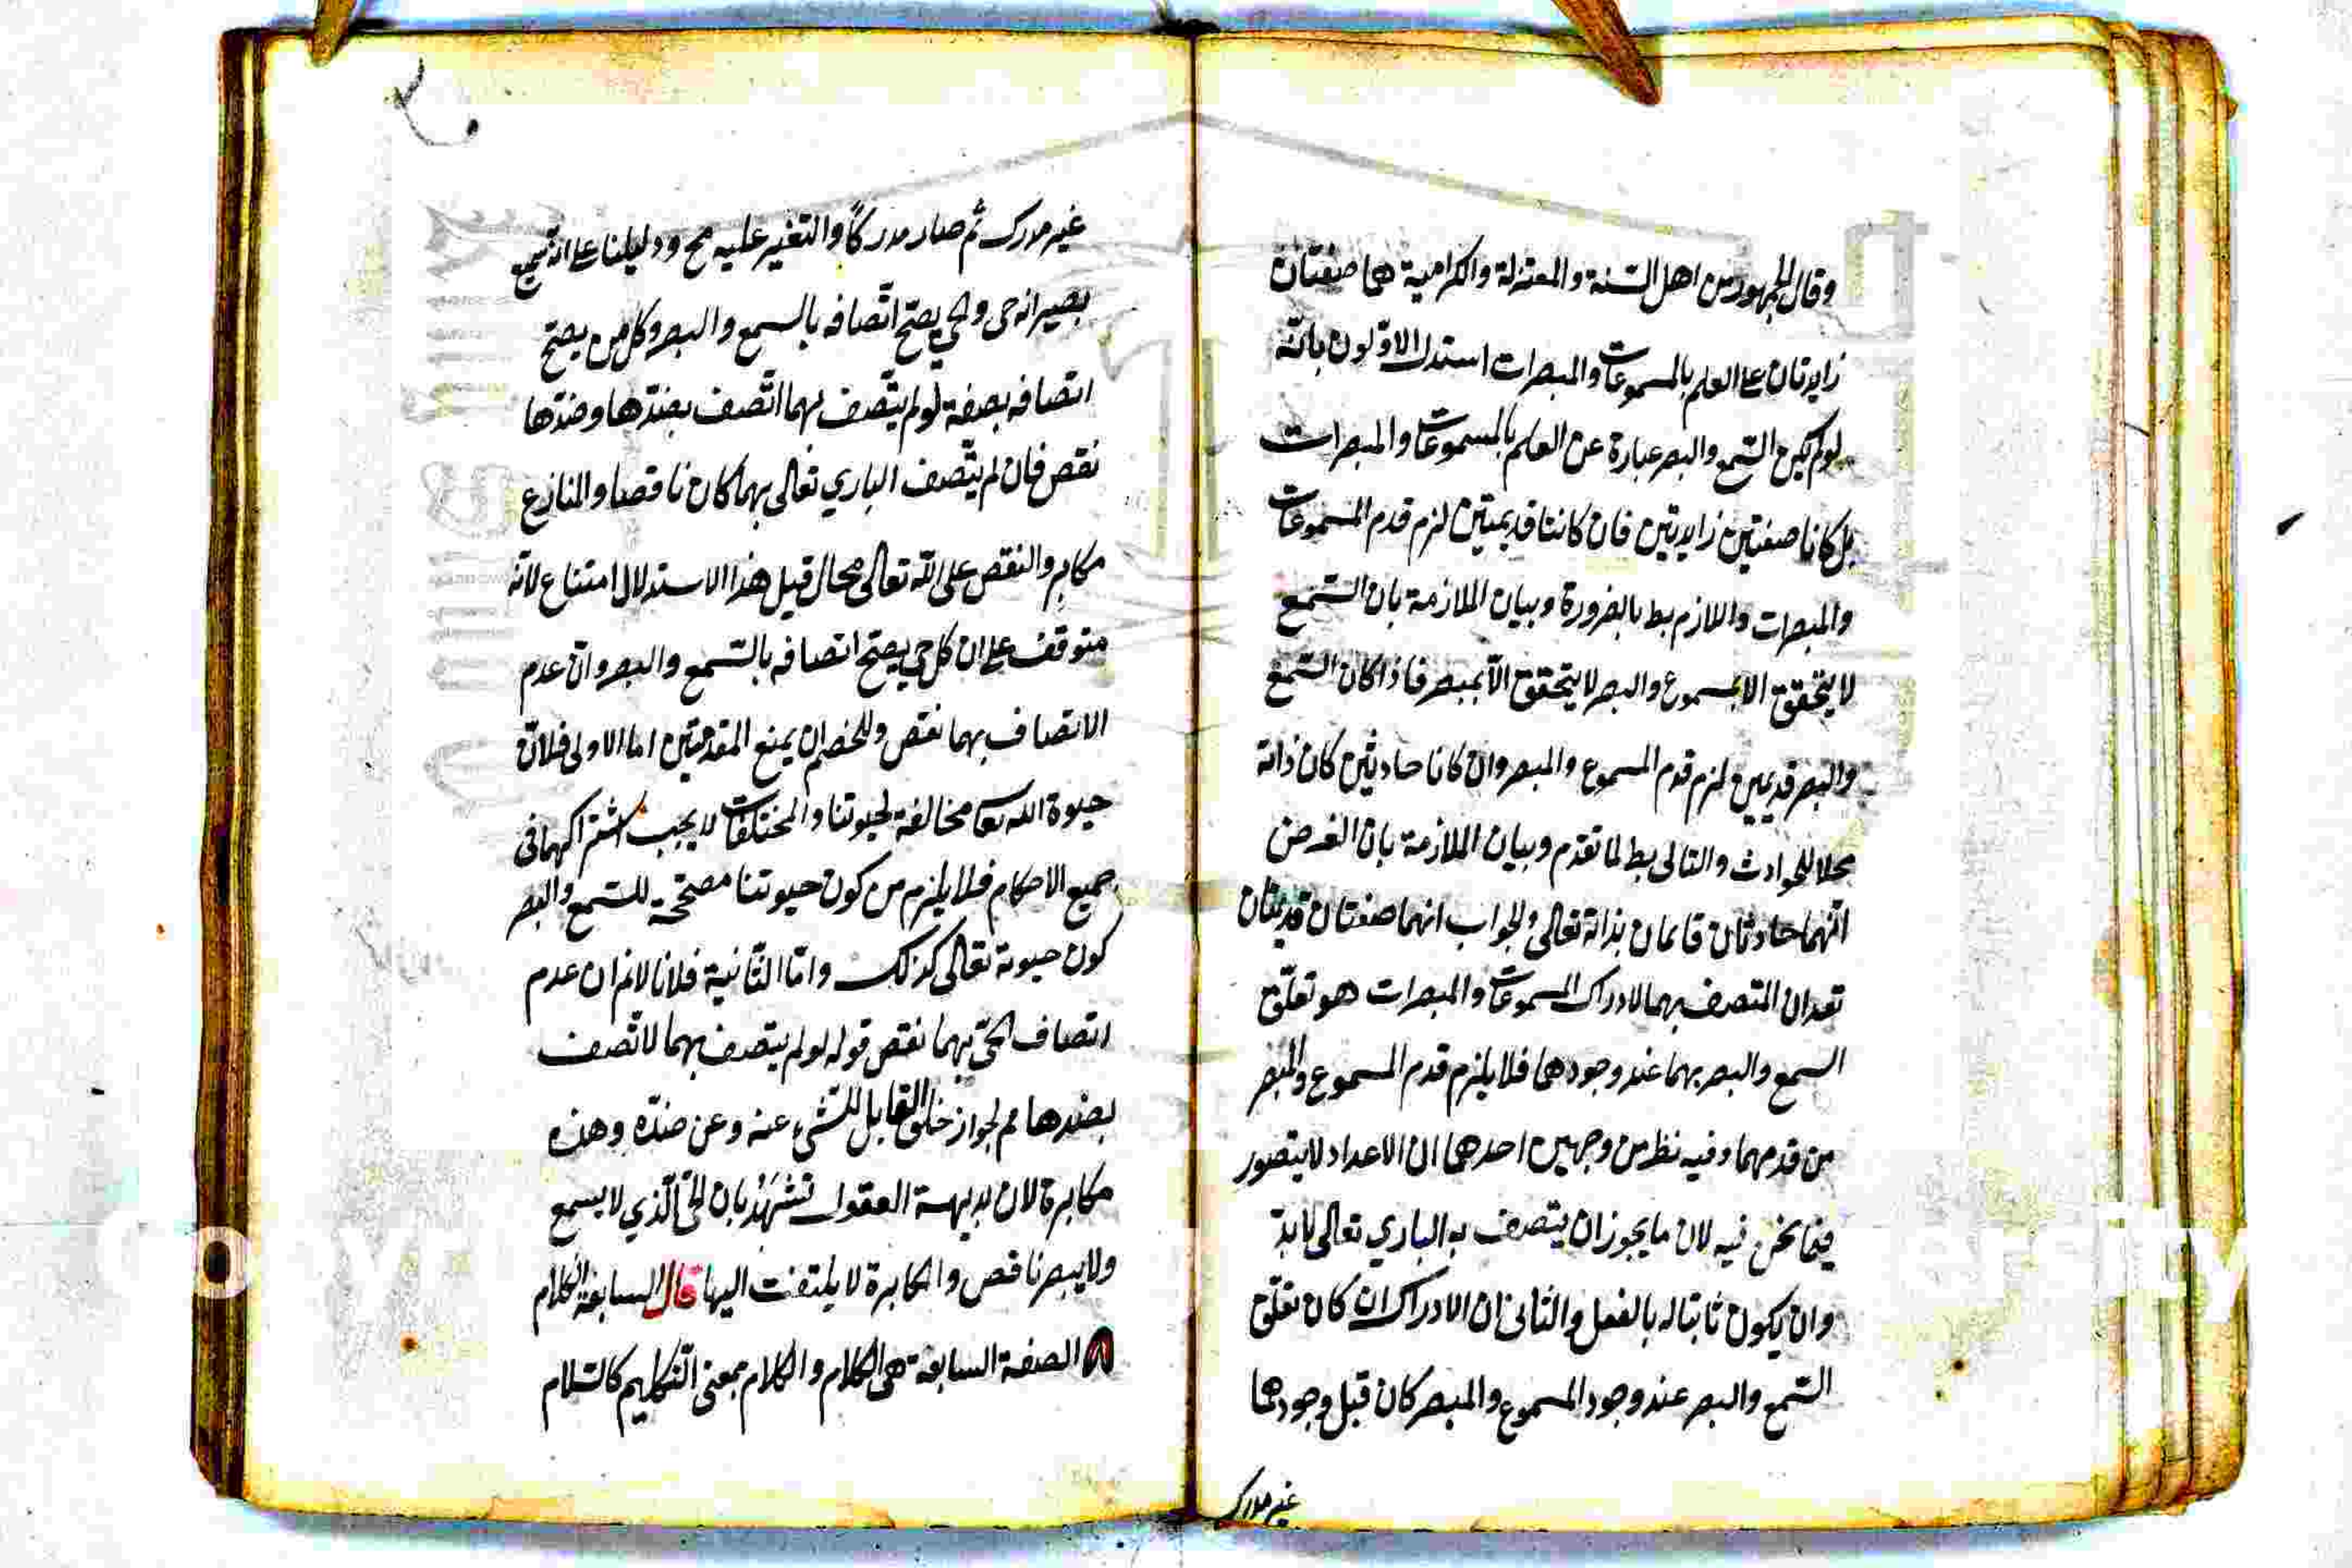 وقال الجمهور من اهل السنة والمعتزلة والكرامية هما صفتان
زايدتان على العلم بالمسموعات والمبصرات استدل الاولون بانّه
لو لم يكن السّمع والبصر عبارة عن العلم بالمسموعات والمبصرات
بل كانا صفتين زايدتين فان كانتا قديمتين لزم قدم المسموعات
والمبصرات واللازم بط بالضرورة وبيان الملازمة بان السّمع
لا يتحقق الا بمسموع والبصر لا يتحقق الّا بمبصر فاذا كان السّمع
والبصر قديمين لزم قدم المسموع والمبصر وان كانا حادثين كان ذاته
محلا للحوادث والتالى بط لما تقدّم وبيان الملازمة بان الغرض
انّهما حادثان قايمان بذاته تعالى والجواب انهما صفتان قديمتان
تعدان المتصف بهما لادراك المسموعات والمبصرات هو تعلّق
السمع والبصر بهما عند وجودهما فلا يلزم قدم المسموع والمبصر
من قدمهما وفيه نظر من وجهين احدهما ان الاعداد لا يتصور
فيما نحن فيه لان ما يجوز ان يتصف به الباري تعالى لا بدّ
وان يكون ثابتا له بالفعل والثانى ان الادراك ان كان تعلّق
السّمع والبصر عند وجود المسموع والمبصر كان قبل وجودهما
غير مدرك
غير مدرك ثم صار مدركًا والتغير عليه مح ودليلنا على انه سميع
بصير انه حى والحى يصحّ اتّصافه بالسمع والبصر وكل من يصحّ
اتصافه بصفة لو لم يتّصف بهما اتّصف بضدّها وضدّها
نقص فان لم يتّصف الباري تعالى بهما كان ناقصا والمنازع
مكابر والنقص على الله تعالى محال قيل هذا الاستدلال امتناع لانه
متوقف على ان كل حي يصحّ اتصافه بالسّمع والبصر وانّ عدم
الاتصاف بهما نقص وللخصم ان يمنع المقدمتين اما الاولى فلانّ
حيوة الله تعا مخالفة لحيوتنا والمختلفات لا يجب اشتراكهما فى
جميع الاحكام فلا يلزم من كون حيوتنا مصحّحة للسّمع والبصر
كون حيوته تعالى كذلك وامّا الثّانية فلانا لانم ان عدم
اتصاف الحىّ بهما نقص قوله لو لم يتصف بهما لاتّصف
بضدها مم لجواز خلوّ القابل للشّىء عنه وعن ضدّه وهذه
مكابرة لان بديهة العقول تشهد بان الحىّ الّذي لا يسمع
ولا يبصر ناقص والمكابرة لا يلتفت اليها قال السابعة الكلام
الصفة السابعة هى الكلام والكلام بمعنى التّكليم كالسّلام